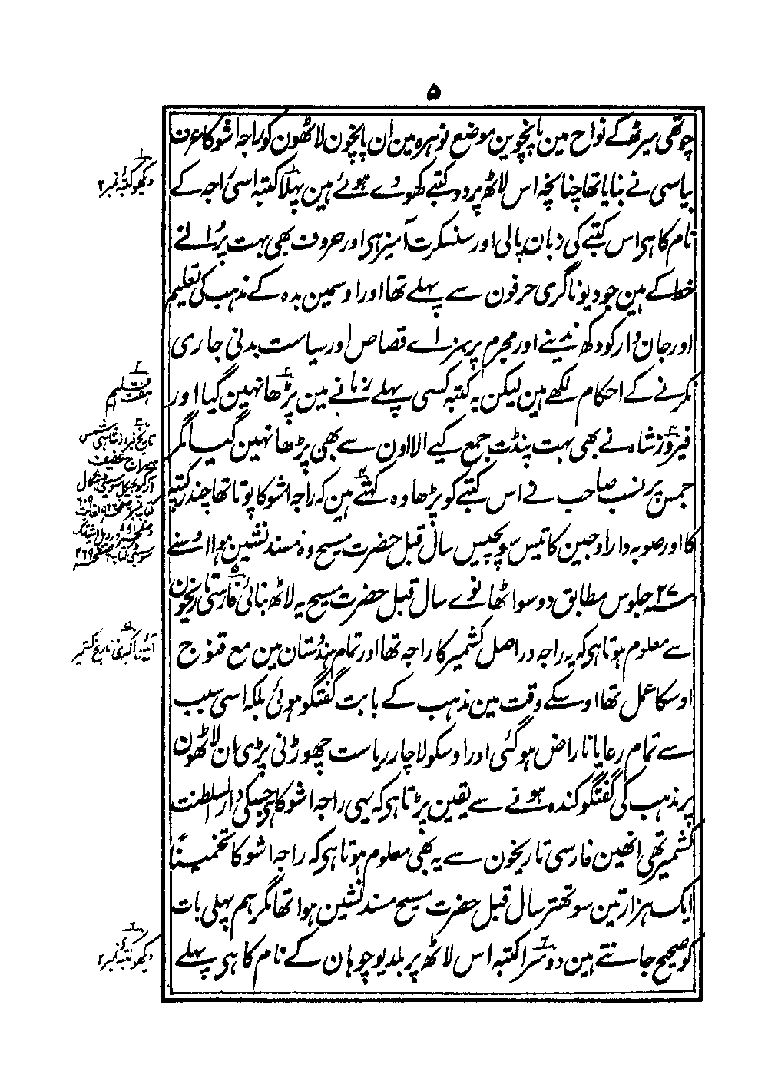 ۵
چوتھی میرٹھ کے نواح مین پانچوین موضع نوہرہ مین ان پانچون لاٹھون کو راجہ اشوکا عرف
بیاسی نے بنایا تھا چنانچہ اس لاٹھ پر دو کتبے کھودے ہوئے ہین پہلا کتبہ اسی راجہ کے
نام کا ہی اس کتبے کی زبان پالی اور سنسکرت آمیز ہی اور حروف بھی بہت پرانے
خط کے ہین جو دیوناگری حرفون سے پہلے تھا اور اوسمین بدہ کے مذہب کی تعلیم
اور جاندار کو دکھ ندینے اور مجرم پر سزاے قصاص اور سیاست بدنی جاری
نکرنے کے احکام لکھے ہین لیکن یہ کتبہ کسی پہلے زمانے مین پڑھا نہین گیا اور
فیروز شاہ نے بھی بہت پنڈت جمع کیے الا اون سے بھی پڑھا نہین گیا مگر
جمس پرنسب صاحب نے اس کتبے کو پڑھا وہ کہتے ہین کہ راجہ اشوکا پوتا تھا چندر گپت
کا اور صوبہ دار اوجین کا تین سو پچیس سال قبل حضرت مسیح وہ مسند نشین ہوا اوسنے
۲۷ سنہ جلوس مطابق دو سو اٹھانوے سال قبل حضرت مسیح یہ لاٹھ بنائی فارسی تاریخون
سے معلوم ہوتا ہی کہ یہ راجہ در اصل کشمیر کا راجہ تھا اور تمام ہندستان مین مع قنوج
اوسکا عمل تھا اوسکے وقت مین مذہب کے بابت گفتگو ہوئی بلکہ اسی سبب
سے تمام رعایا ناراض ہوگئی اور اوسکو لاچار ریاست چھوڑنی پڑی ان لاٹھون
پر مذہب کی گفتگو کندہ ہونے سے یقین پڑتا ہی کہ یہی راجہ اشوکا ہی جسکی دار السلطنت
کشمیر تھی انھین فارسی تاریخون سے یہ بھی معلوم ہوتا ہی کہ راجہ اشوکا تخمیناً
ایک ہزار تین سو تہتر سال قبل حضرت مسیح مسند نشین ہوا تھا مگر ہم پہلی بات
کو صحیح جانتے ہین دوسرا کتبہ اس لاٹھ پر بلدیو چوہان کے نام کا ہی پہلے
دیکھو کتبہ نمبر ۲
ہفت اقلیم
تاریخ فیروز شاہی شمس
سراج عفیف
آئین اکبری تاریخ کشمیر
دیکھو کتبہ نمبر